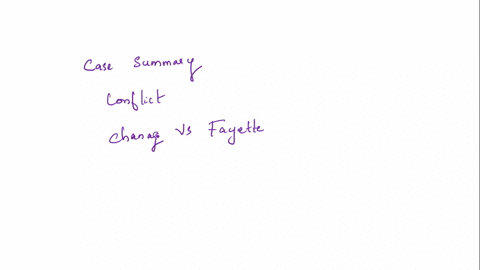 Case Summary
Conflict
Vs Fayette